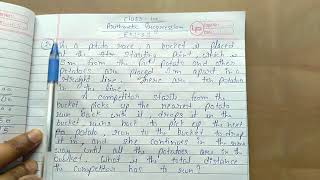 Class - 10
Arithmetic Progression
Ex - 5.3
In a potato race, a bucket is placed
at the starting point, which is
5m from the first potato and other
potatoes are placed 3m apart in a
straight line. There are 10 potatoes
in the line.
A competitor starts from the
bucket, picks up the nearest potato
run back with it, drops it in the
bucket, runs back to pick up the next
potato, run to the bucket to drop
it in, and she continues in the same
way until all the potatoes are in the
bucket. What is the total distance
the competitor has to run?